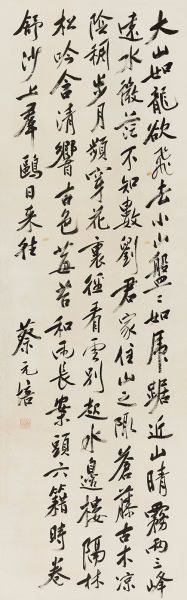 大山如龍欲飛去小山盤〻如虎踞近山晴霧兩三峰
遠水微茫不知數劉君家住山之隈蒼藤古木涼
陰稠步月頻穿花裏徑看雲別起水邊樓隔林
松吟含清響古色莓苔和雨長案頭六籍時卷
舒沙上羣鷗日來往
蔡元培